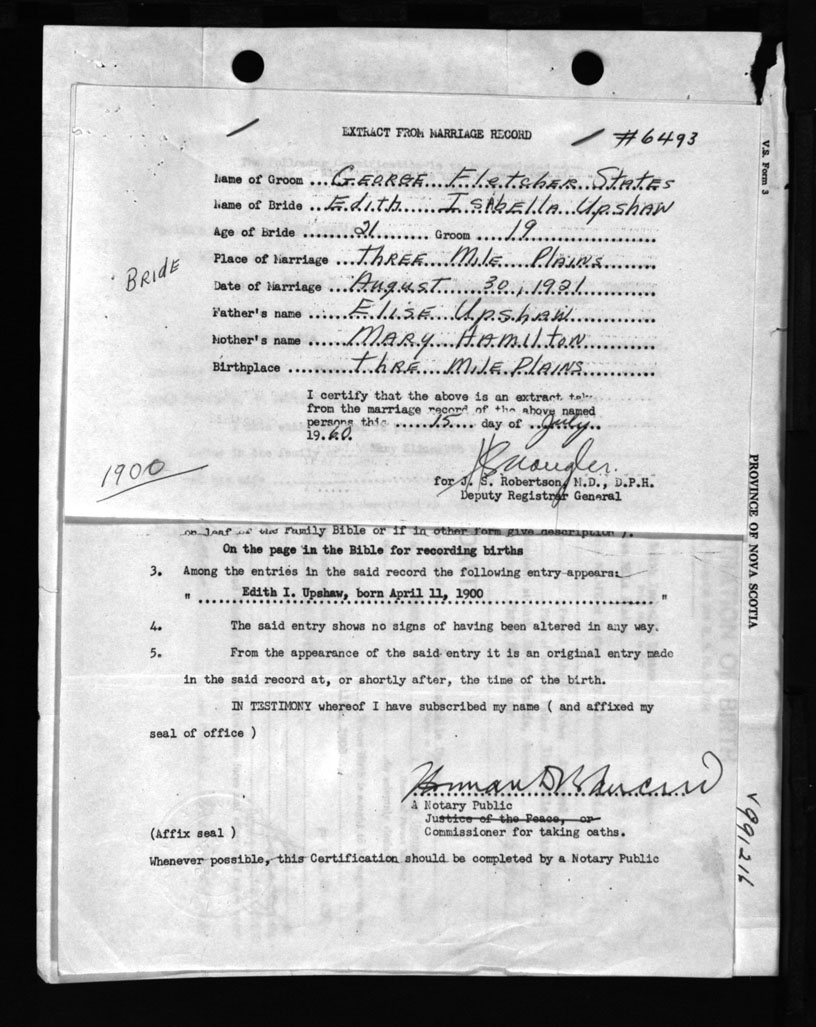 EXTRACT FROM MARRIAGE RECORD
#6493
Name of Groom ...George Fletcher States
Name of Bride ...Edith Isabella Upshaw
Age of Bride ........21........ Groom ....19....................
Place of Marriage ...Three Mile Plains
Date of Marriage ...August 30, 1921
Father's name ......Elise Upshaw
Mother's name ......Mary Hamilton
Birthplace ........Thre Mile Plains
Bride
I certify that the above is an extract
from the marriage record of the above named
persons this ......15.... day of ..July..
19.60.
1900
for J. S. Robertson, M.D., D.P.H.
Deputy Registrar General
on leaf of the Family Bible or if in other form give description ).
On the page in the Bible for recording births
3. Among the entries in the said record the following entry appears:
" Edith I. Upshaw, born April 11, 1900 "
4. The said entry shows no signs of having been altered in any way.
5. From the appearance of the said entry it is an original entry made
in the said record at, or shortly after, the time of the birth.
IN TESTIMONY whereof I have subscribed my name ( and affixed my
seal of office )
A Notary Public
Justice of the Peace, or
(Affix seal ) Commissioner for taking oaths.
Whenever possible, this Certification should be completed by a Notary Public
V.S. Form 3
PROVINCE OF NOVA SCOTIA
V991216